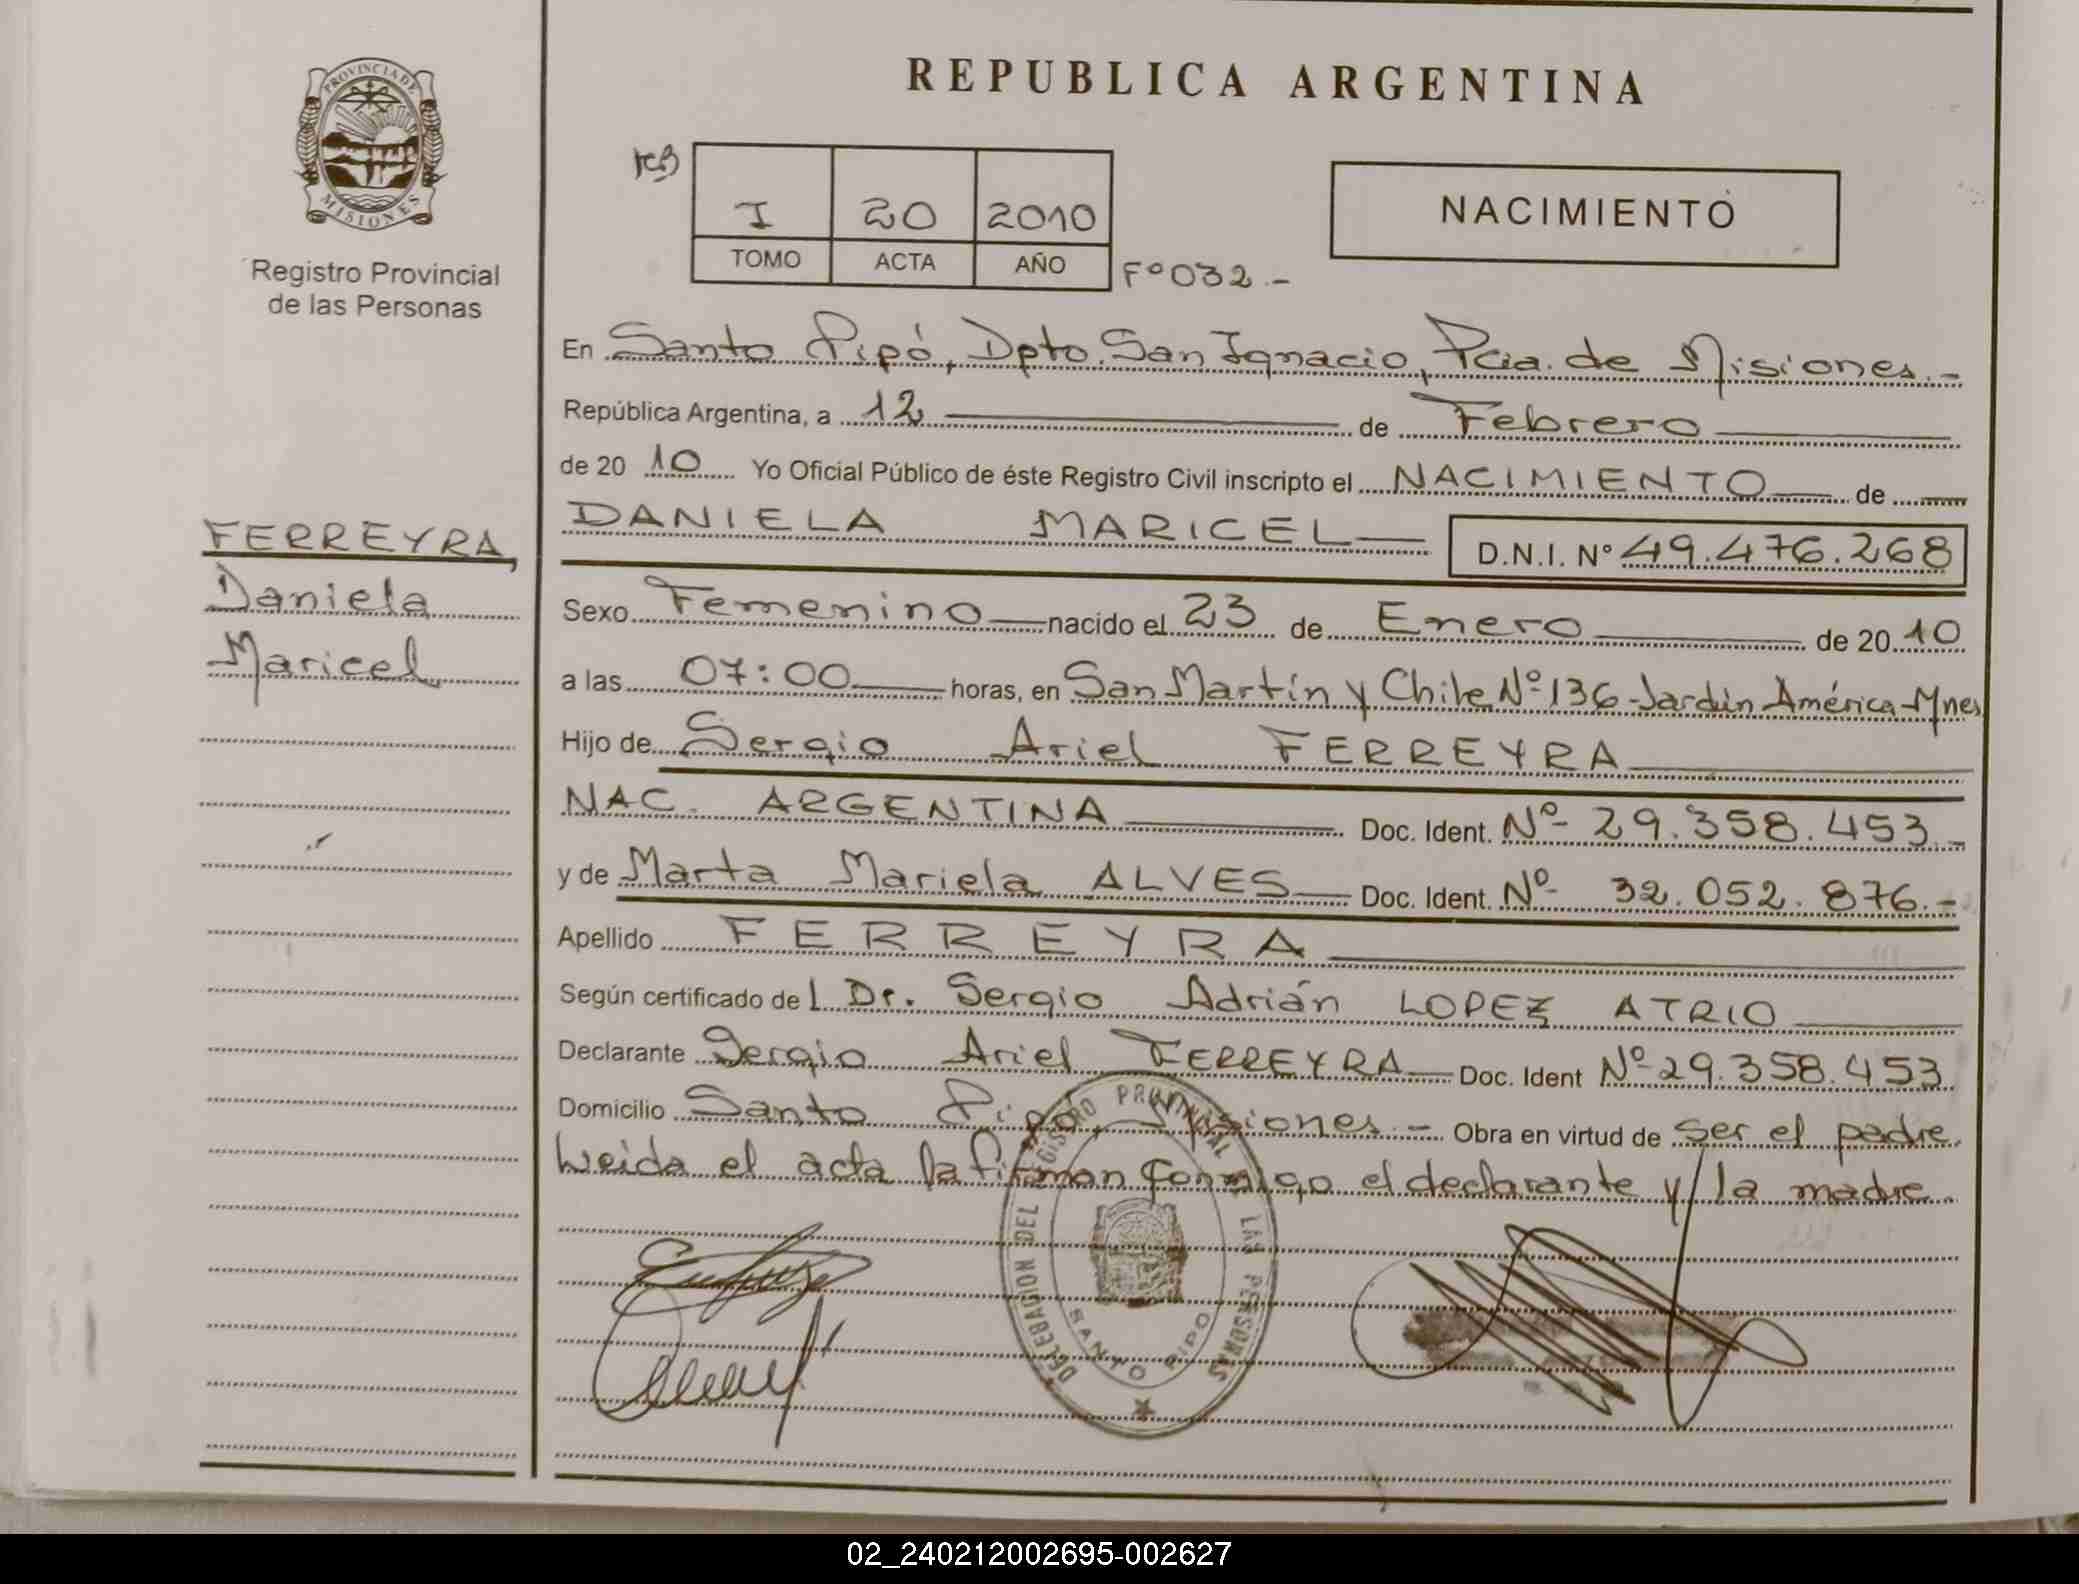 REPUBLICA ARGENTINA
PROVINCIA DE MISIONES
Registro Provincial
de las Personas
I 20 2010
TOMO ACTA AÑO
Fº 032.-
NACIMIENTO
En Santo Pipó, Dpto. San Ignacio, Pcia. de Misiones.-
República Argentina, a 12 de Febrero
de 20 10 Yo Oficial Público de éste Registro Civil inscripto el NACIMIENTO de
DANIELA MARICEL D.N.I. Nº 49.476.268
FERREYRA,
Daniela
Maricel
Sexo Femenino nacido el 23 de Enero de 20 10
a las 07:00 horas, en San Martín y Chile Nº 136-Jardín América-Mnes
Hijo de Sergio Ariel FERREYRA
NAC. ARGENTINA Doc. Ident. Nº 29.358.453.-
y de Marta Mariela ALVES Doc. Ident. Nº 32.052.876.-
Apellido FERREYRA
Según certificado de l Dr. Sergio Adrián LOPEZ ATRIO
Declarante Sergio Ariel FERREYRA Doc. Ident Nº 29.358.453
Domicilio Santo Pipó, Misiones.- Obra en virtud de ser el padre.
Leida el acta la firman conmigo el declarante y la madre.
DELEGACION DEL REGISTRO PROVINCIAL DE LAS PERSONAS
SANTO PIPO
02_240212002695-002627